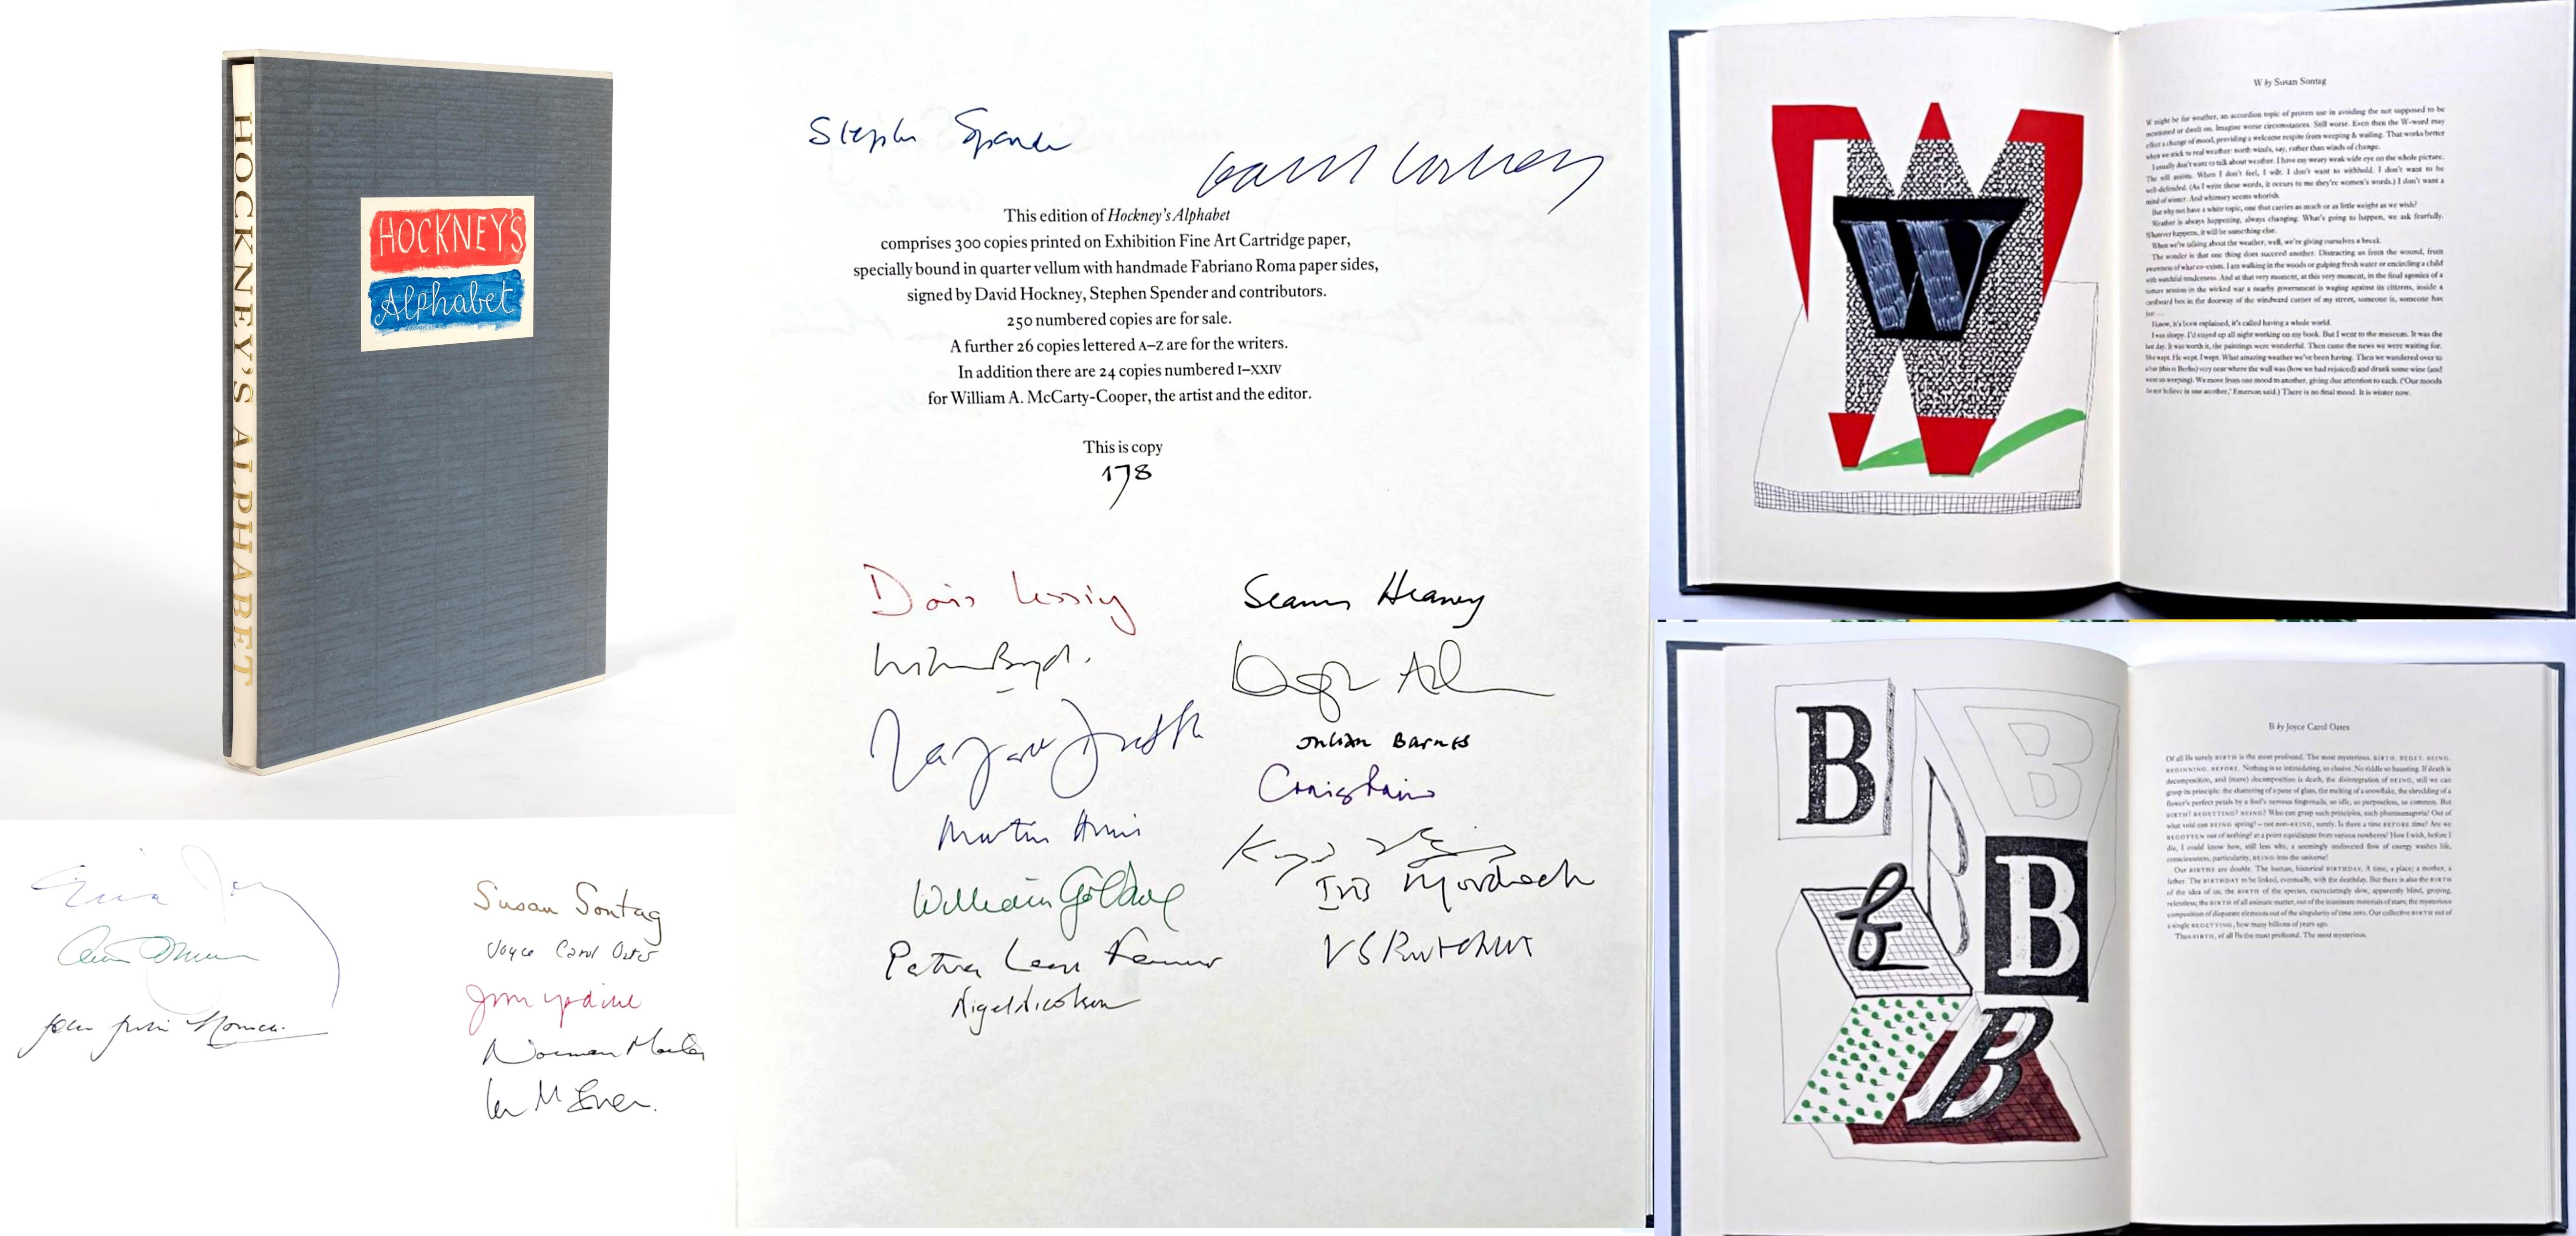 HOCKNEY'S ALPHABET
HOCKNEY'S
Alphabet
Susan Sontag
Joyce Carol Oates
John Updike
Norman Mailer
Ian McEwan
Stephen Spender
David Hockney
This edition of Hockney's Alphabet
comprises 300 copies printed on Exhibition Fine Art Cartridge paper,
specially bound in quarter vellum with handmade Fabriano Roma paper sides,
signed by David Hockney, Stephen Spender and contributors.
250 numbered copies are for sale.
A further 26 copies lettered A–Z are for the writers.
In addition there are 24 copies numbered I–XXIV
for William A. McCarty-Cooper, the artist and the editor.
This is copy
178
Doris Lessing
Seamus Heaney
William Boyd.
Douglas Adams
Margaret Drabble
Julian Barnes
Craig Raine
Martin Amis
William Golding
Iris Murdoch
Patrick Leigh Fermor
V S Pritchett
Nigel Nicolson
W by Susan Sontag
W might be for weather, an accordion topic of proven use in avoiding the not supposed to be
mentioned or dwelt on. Imagine worse circumstances. Still worse. Even then the W-word may
effect a change of mood, providing a welcome respite from weeping & wailing. That works better
when we stick to real weather: north winds, say, rather than winds of change.
I usually don't want to talk about weather. I have my weary weak wide eye on the whole picture.
The will assists. When I don't feel, I wilt. I don't want to withhold. I don't want to be
well-defended. (As I write these words, it occurs to me they're women's words.) I don't want a
mind of winter. And whimsey seems whorish.
But why not have a white topic, one that carries as much or as little weight as we wish?
Weather is always happening, always changing. What's going to happen, we ask fearfully.
Whatever happens, it will be something else.
When we're talking about the weather, well, we're giving ourselves a break.
The wonder is that one thing does succeed another. Distracting us from the wound, from
awareness of what co-exists. I am walking in the woods or gulping fresh water or encircling a child
with watchful tenderness. And at that very moment, at this very moment, in the final agonies of a
torture session in the wicked war a nearby government is waging against its citizens, inside a
cardboard box in the doorway of the windward corner of my street, someone is, someone has
just ...
I know, it's been explained, it's called having a whole world.
I was sleepy. I'd stayed up all night working on my book. But I went to the museum. It was the
last day. It was worth it, the paintings were wonderful. Then came the news we were waiting for.
She wept. He wept. I wept. What amazing weather we've been having. Then we wandered over to
a bar (this is Berlin) very near where the wall was (how we had rejoiced) and drank some wine (and
went on weeping). We move from one mood to another, giving due attention to each. ('Our moods
do not believe in one another,' Emerson said.) There is no final mood. It is winter now.
W
B
B
B
b
B
B
B by Joyce Carol Oates
Of all Bs surely BIRTH is the most profound. The most mysterious. BIRTH. BEGET. BEING.
BEGINNING. BEFORE. Nothing is so intimidating, so elusive. No riddle so haunting. If death is
decomposition, and (mere) decomposition is death, the disintegration of BEING, still we can
grasp its principle: the shattering of a pane of glass, the melting of a snowflake, the shredding of a
flower's perfect petals by a fool's nervous fingernails, so idle, so purposeless, so common. But
BIRTH? BEGETTING? BEING? Who can grasp such principles, such phantasmagoria? Out of
what void can BEING spring? – not non-BEING, surely. Is there a time BEFORE time? Are we
BEGOTTEN out of nothing? at a point equidistant from various nowheres? How I wish, before I
die, I could know how, still less why, a seemingly undirected flow of energy washes life,
consciousness, particularity, BEING into the universe!
Our BIRTHS are double. The human, historical BIRTHDAY. A time, a place; a mother, a
father. The BIRTHDAY to be linked, eventually, with the deathday. But there is also the BIRTH
of the idea of us; the BIRTH of the species, excruciatingly slow, apparently blind, groping,
relentless; the BIRTH of all animate matter, out of the inanimate materials of stars; the mysterious
composition of disparate elements out of the singularity of time zero. Our collective BIRTH out of
a single BEGETTING, how many billions of years ago.
Thus BIRTH, of all Bs the most profound. The most mysterious.